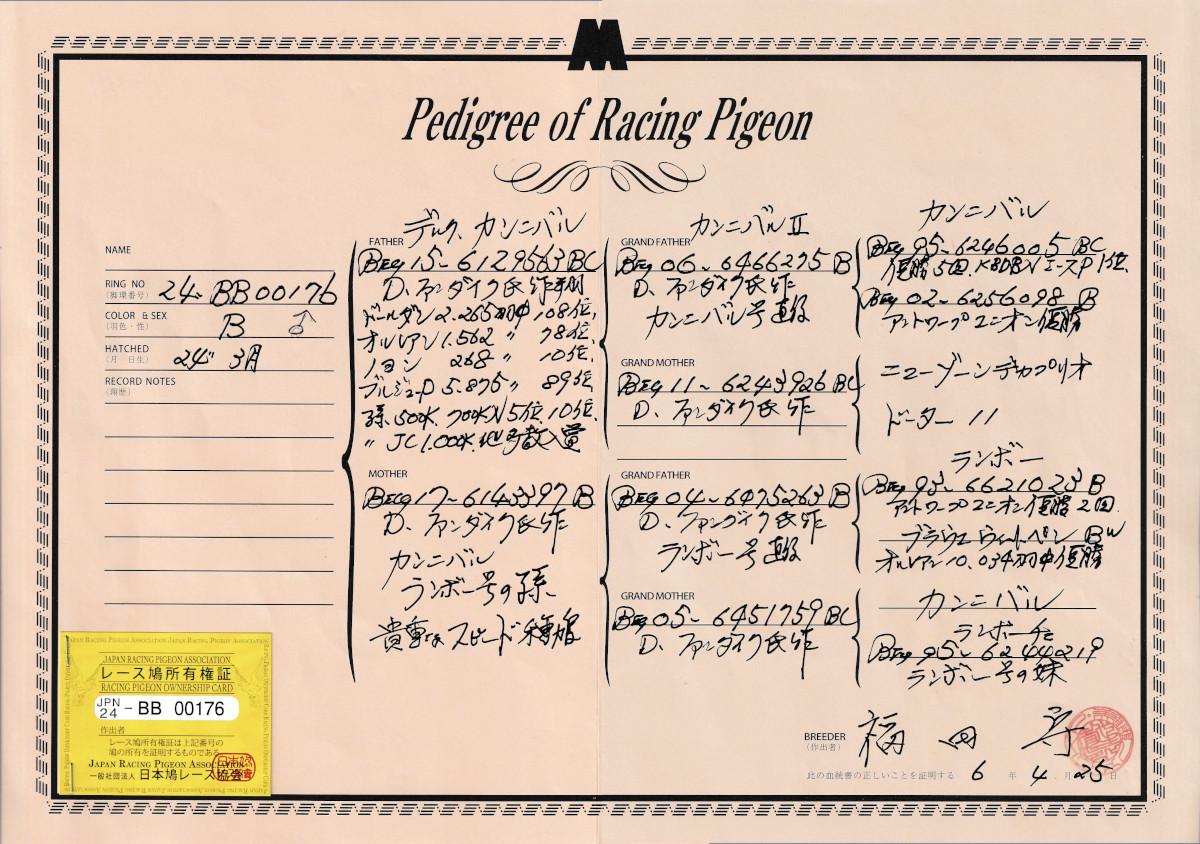 Pedigree of Racing Pigeon
NAME
RING NO
(脚環番号)
24~BB00176
COLOR & SEX
(羽色・性)
B ♂
HATCHED
(月 日生)
24年 3月
RECORD NOTES
(翔歴)
FATHER
デルク、カンニバル
BEG 15~6129563 BC
D、ファンダイク氏作
ドールダン 2.265羽中 108位、
オルレアン 1.562 〃 78位、
ノヨン 268 〃 10位、
ブルジュP 5.875〃 89位
孫、500K、700KN5位、10位、
〃 JC1.000K、他多数入賞
MOTHER
BEG 17~6143397 B
D、ファンダイク氏作
カンニバル
ランボー号の孫、
貴重なスピード種鳩
GRAND FATHER
カンニバルⅡ
BEG 06~6466275 B
D、ファンダイク氏作
カンニバル号直仔
GRAND MOTHER
BEG 11~6243926 BC
D、ファンダイク氏作
GRAND FATHER
BEG 04~6475263 B
D、ファンダイク氏作
ランボー号直仔
GRAND MOTHER
BEG 05~6451759 BC
D、ファンダイク氏作
カンニバル
BEG 95~6246005 BC
優勝5回、KBDBNエースP1位、
BEG 02~6256098 B
アントワープユニオン優勝
ニューゾーンデカプリオ
ドーター 11
ランボー
BEG 93~6621023 B
アントワープユニオン優勝2回
ブラウエウィットペン BW
オルレアン10.034羽中優勝
カンニバル
ランボーチェ
BEG 95~6244219
ランボー号の妹
BREEDER
(作出者)
福田
此の血統書の正しいことを証明する 6 年 4 月 25 日
JAPAN RACING PIGEON ASSOCIATION
レース鳩所有権証
RACING PIGEON OWNERSHIP CARD
JPN
24 - BB 00176
作出者
レース鳩所有権証は上記番号の
鳩の所有を証明するものである
JAPAN RACING PIGEON ASSOCIATION
一般社団法人 日本鳩レース協会